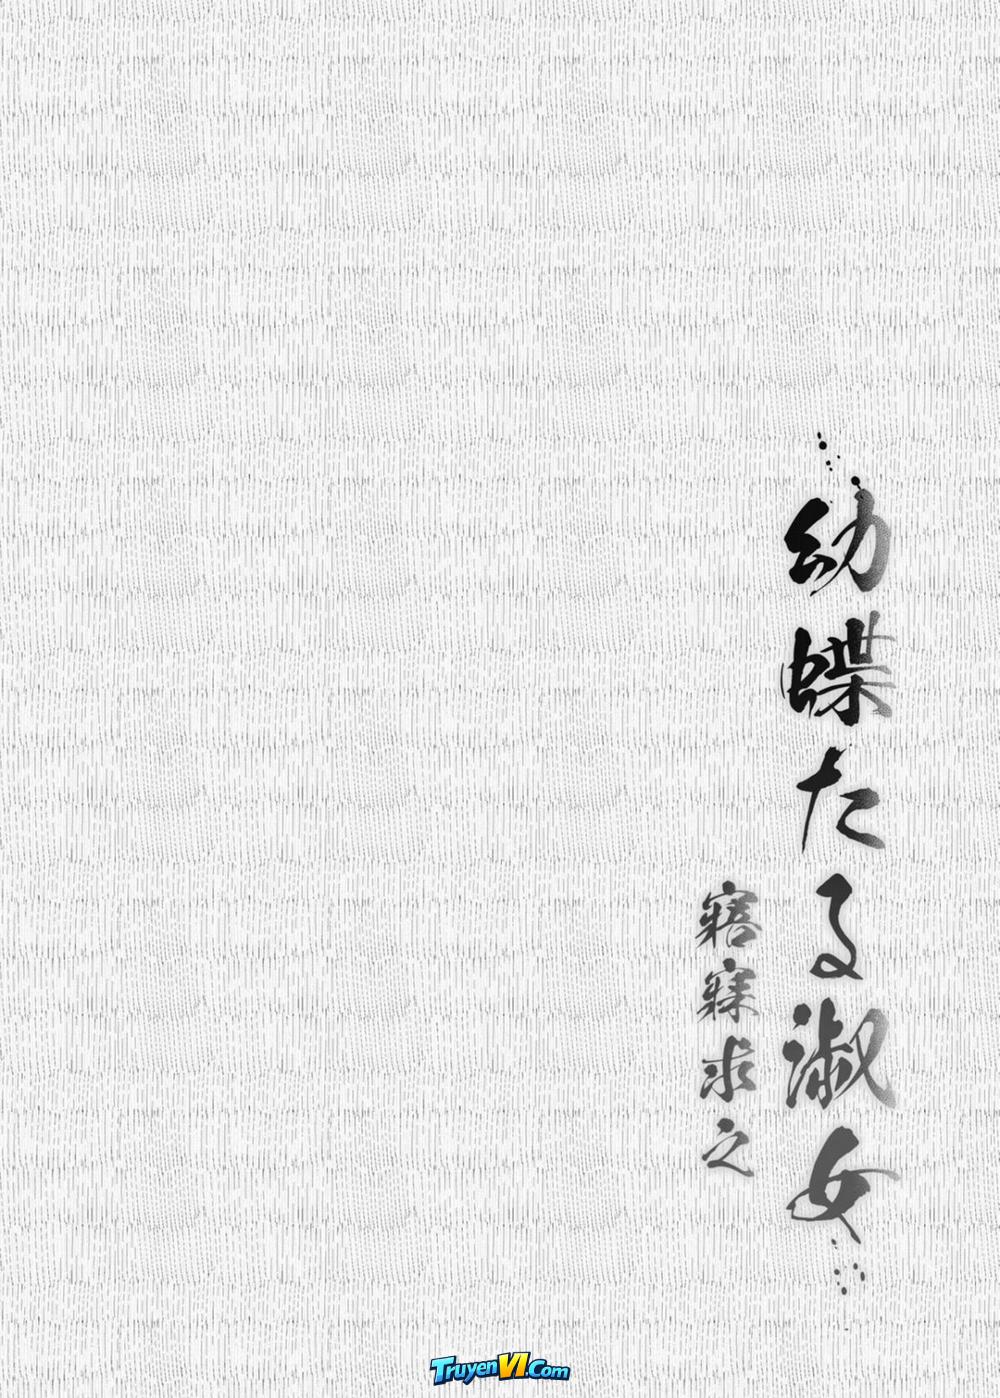 幼蝶たる淑女
寤寐求之
TruyenVI.Com